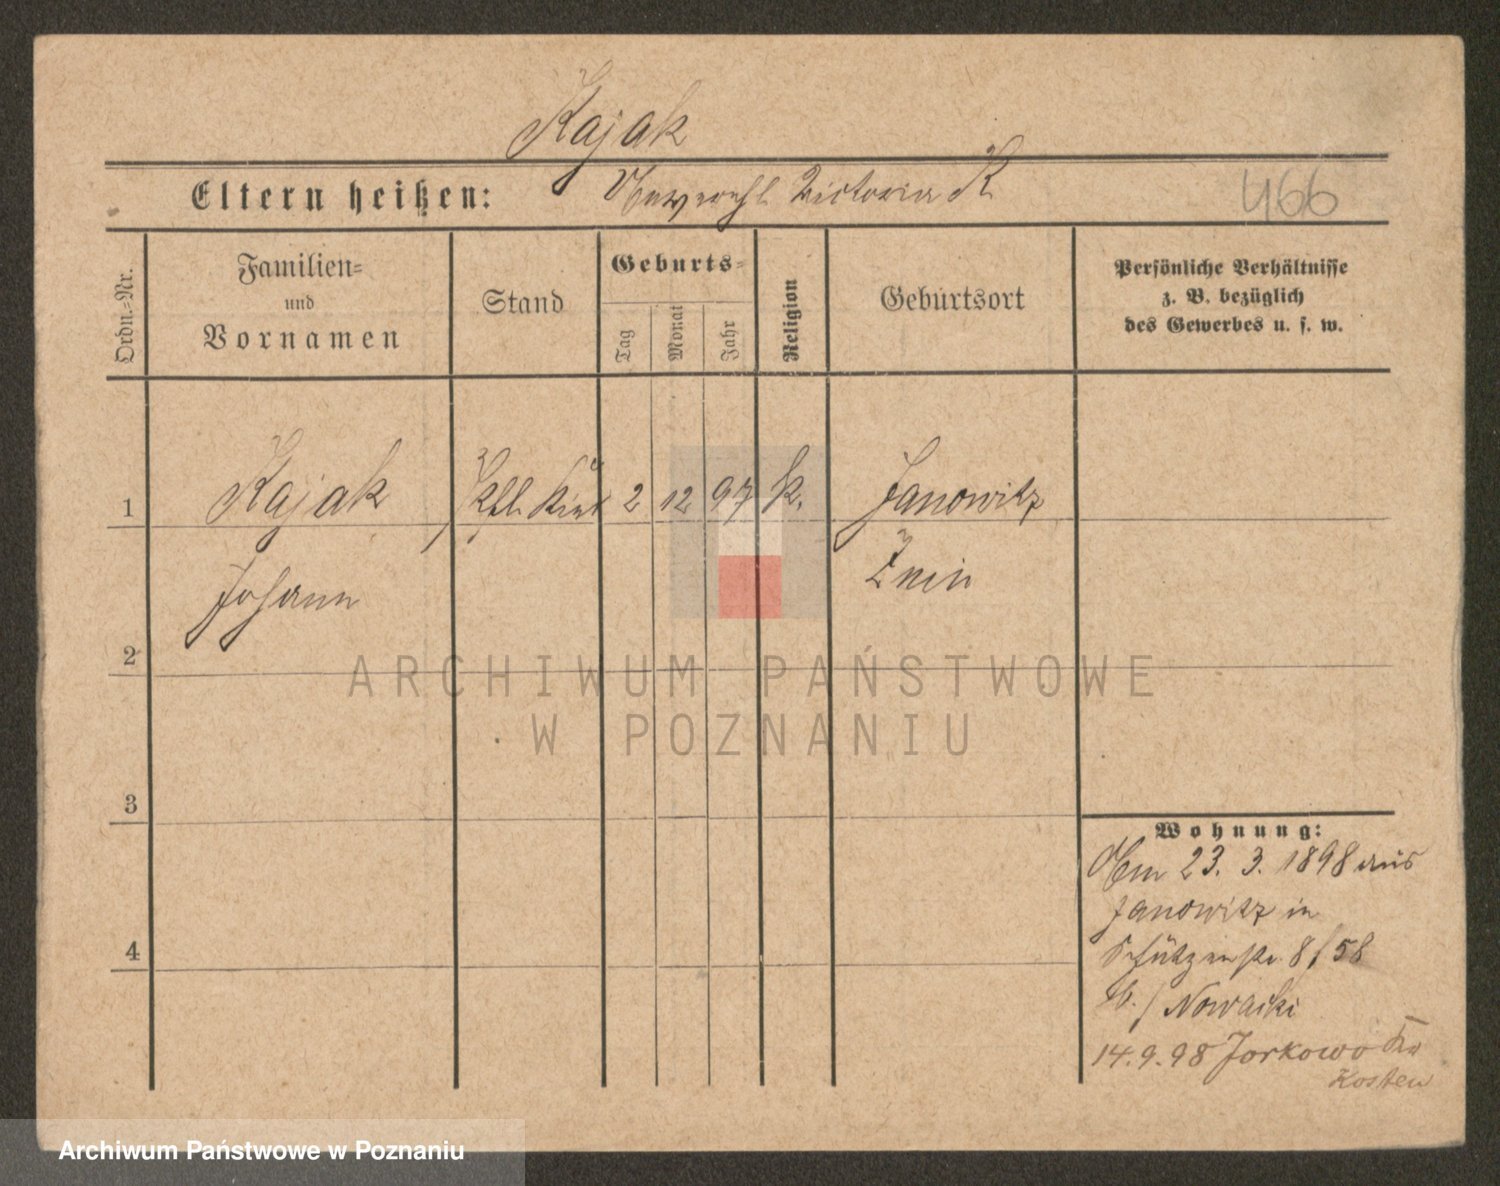 Kajak
Eltern heißen: Unverehl. Victoria K
466
Ordn.-Nr.
Familien-
und
Vornamen
Stand
Geburts-
Tag
Monat
Jahr
Religion
Geburtsort
Persönliche Verhältnisse
z. B. bezüglich
des Gewerbes u. s. w.
1 Kajak Kind 2 12 97 k. Janowitz
Johann Znin
2
3
4
ARCHIWUM PAŃSTWOWE
W POZNANIU
Wohnung:
Am 23. 3. 1898 aus
Janowitz in
Schützenstr. 8/58
b./ Nowacki
14.9.98 Jorkowo Krs
Kosten
Archiwum Państwowe w Poznaniu